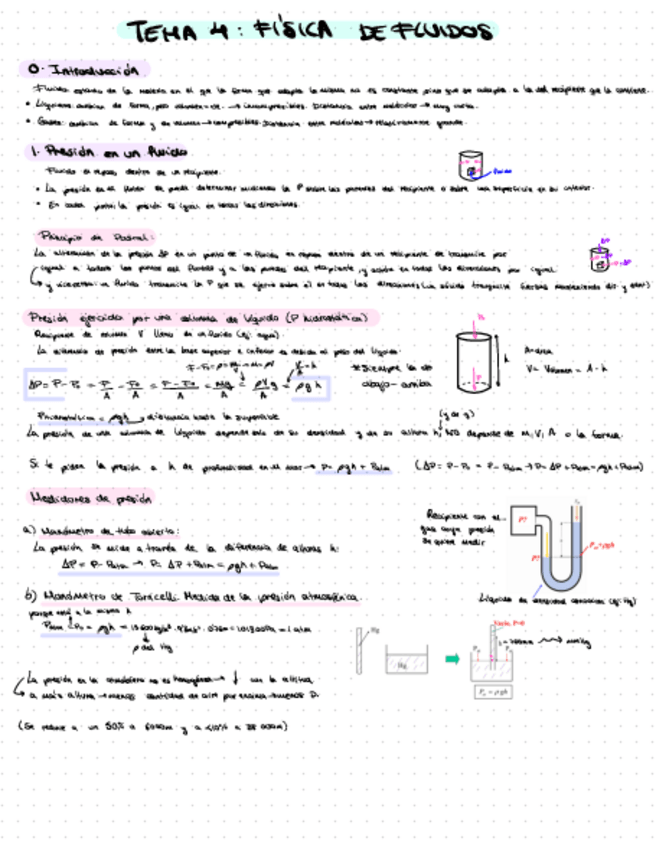 TEMA 4: FÍSICA DE FLUIDOS
0. Introducción
Fluido: estado de la materia en el que la forma que adopta la misma no es constante, sino que se adapta a la del recipiente que la contiene.
• Líquidos: cambian de forma, pero volumen → incompresibles. Distancia entre moléculas → muy corta.
• Gases: cambian de forma y volumen → compresibles. Distancia entre moléculas → relativamente grande.
1. Presión en un fluido
Fluido en reposo dentro de un recipiente.
fluido
• La presión en el fluido se puede determinar midiendo la P sobre las paredes del recipiente o sobre una superficie en su interior.
• En cada punto la presión es igual en todas las direcciones.
Principio de Pascal:
La alteración de la presión ΔP en un punto de un fluido en reposo dentro de un recipiente se transmite por
igual a todos los puntos del fluido y a las paredes del recipiente, y actúa en todas las direcciones por igual.
Presión ejercida por una columna de líquido (P hidrostática)
Recipiente de volumen V lleno de un fluido (ej: agua).
La diferencia de presión entre la base superior e inferior es debida al peso del líquido.
ΔP = P - P₀ = F/A - F₀/A = F - F₀/A = mg/A = ρVg/A = ρgh
*Siempre la de
abajo - arriba
A = área
V = Volumen = A · h
P hidrostática = ρgh → distancia hasta la superficie
La presión de una columna de líquido depende solo de su densidad y de su altura h, NO depende de m, V, A o la forma.
Si te piden la presión a h de profundidad en el mar → P = ρgh + Patm (ΔP = P - P₀ = P - Patm → P = ΔP + Patm = ρgh + Patm)
Medidores de presión
Recipiente con el
gas cuya presión
se quiere medir
P?
a) Manómetro de tubo abierto:
La presión se mide a través de la diferencia de alturas h:
ΔP = P - Patm → P = ΔP + Patm = ρgh + Patm
Líquido de densidad conocida (ej: Hg)
b) Manómetro de Torricelli: Medida de la presión atmosférica.
Patm = P₀ = ρgh = 13600 kg/m³ · 9'8 m/s² · 0'76 m = 101300 Pa = 1 atm
ρ del Hg
Hg
Hg
h = 760 mm → mmHg
P₀ = ρgh
La presión en la atmósfera no es homogénea → ↓ con la altura
a más altura → menos cantidad de aire por encima → menos P.
(Se reduce a un 50% a